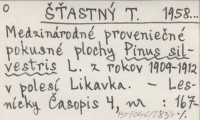 O ŠŤASTNÝ T. 1958...
Medzinárodné proveniečné
pokusné plochy Pinus sil-
vestris L. z rokov 1909-1912
v polesí Likavka. - Les-
nícky Časopis 4, : 167-